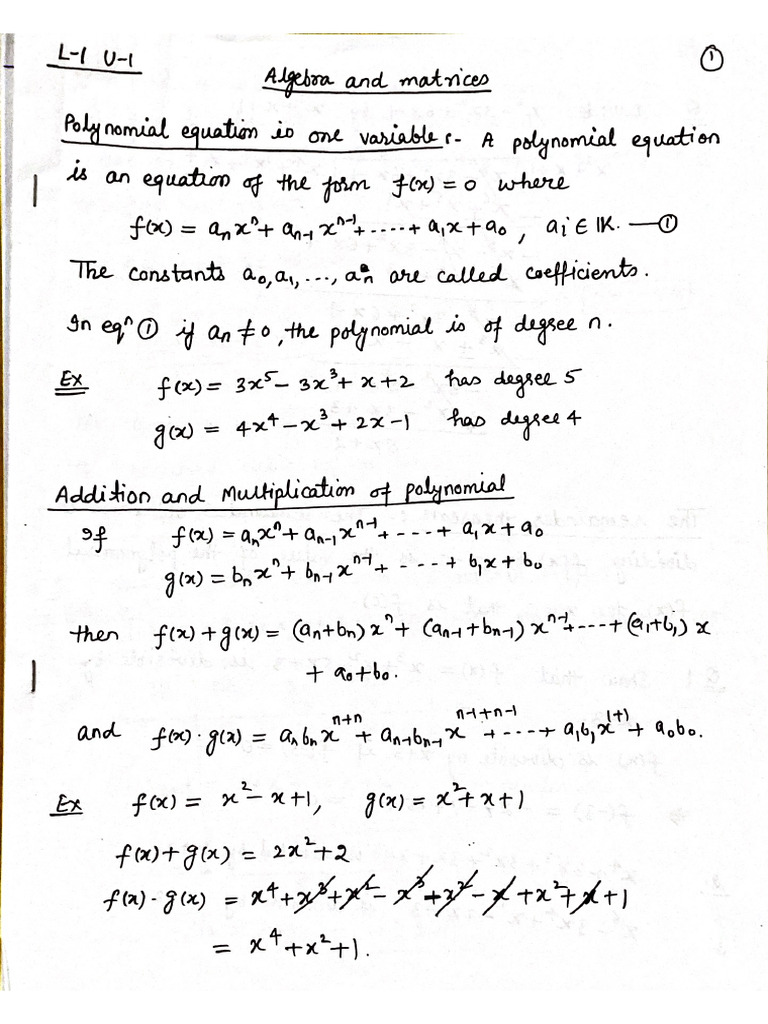 L-1 U-1
①
Algebra and matrices
Polynomial equation in one variable :- A polynomial equation
is an equation of the form f(x) = 0 where
f(x) = aₙxⁿ + aₙ₋₁xⁿ⁻¹ + ..... + a₁x + a₀ , aᵢ ∈ 𝕂. —①
The constants a₀, a₁, ..., aₙ are called coefficients.
In eqⁿ ① if aₙ ≠ 0, the polynomial is of degree n.
Ex f(x) = 3x⁵ - 3x³ + x + 2 has degree 5
g(x) = 4x⁴ - x³ + 2x - 1 has degree 4
Addition and Multiplication of polynomial
If f(x) = aₙxⁿ + aₙ₋₁xⁿ⁻¹ + - - - + a₁x + a₀
g(x) = bₙxⁿ + bₙ₋₁xⁿ⁻¹ + - - - - + b₁x + b₀
then f(x) + g(x) = (aₙ+bₙ) xⁿ + (aₙ₋₁+bₙ₋₁) xⁿ⁻¹ + - - - + (a₁+b₁) x
+ a₀+b₀.
and f(x) · g(x) = aₙbₙxⁿ⁺ⁿ + aₙ₋₁bₙ₋₁xⁿ⁻¹⁺ⁿ⁻¹ + - - - + a₁b₁x¹⁺¹ + a₀b₀.
Ex f(x) = x² - x + 1, g(x) = x² + x + 1
f(x) + g(x) = 2x² + 2
f(x) · g(x) = x⁴ + x³ + x² - x³ + x² - x + x² + x + 1
= x⁴ + x² + 1.